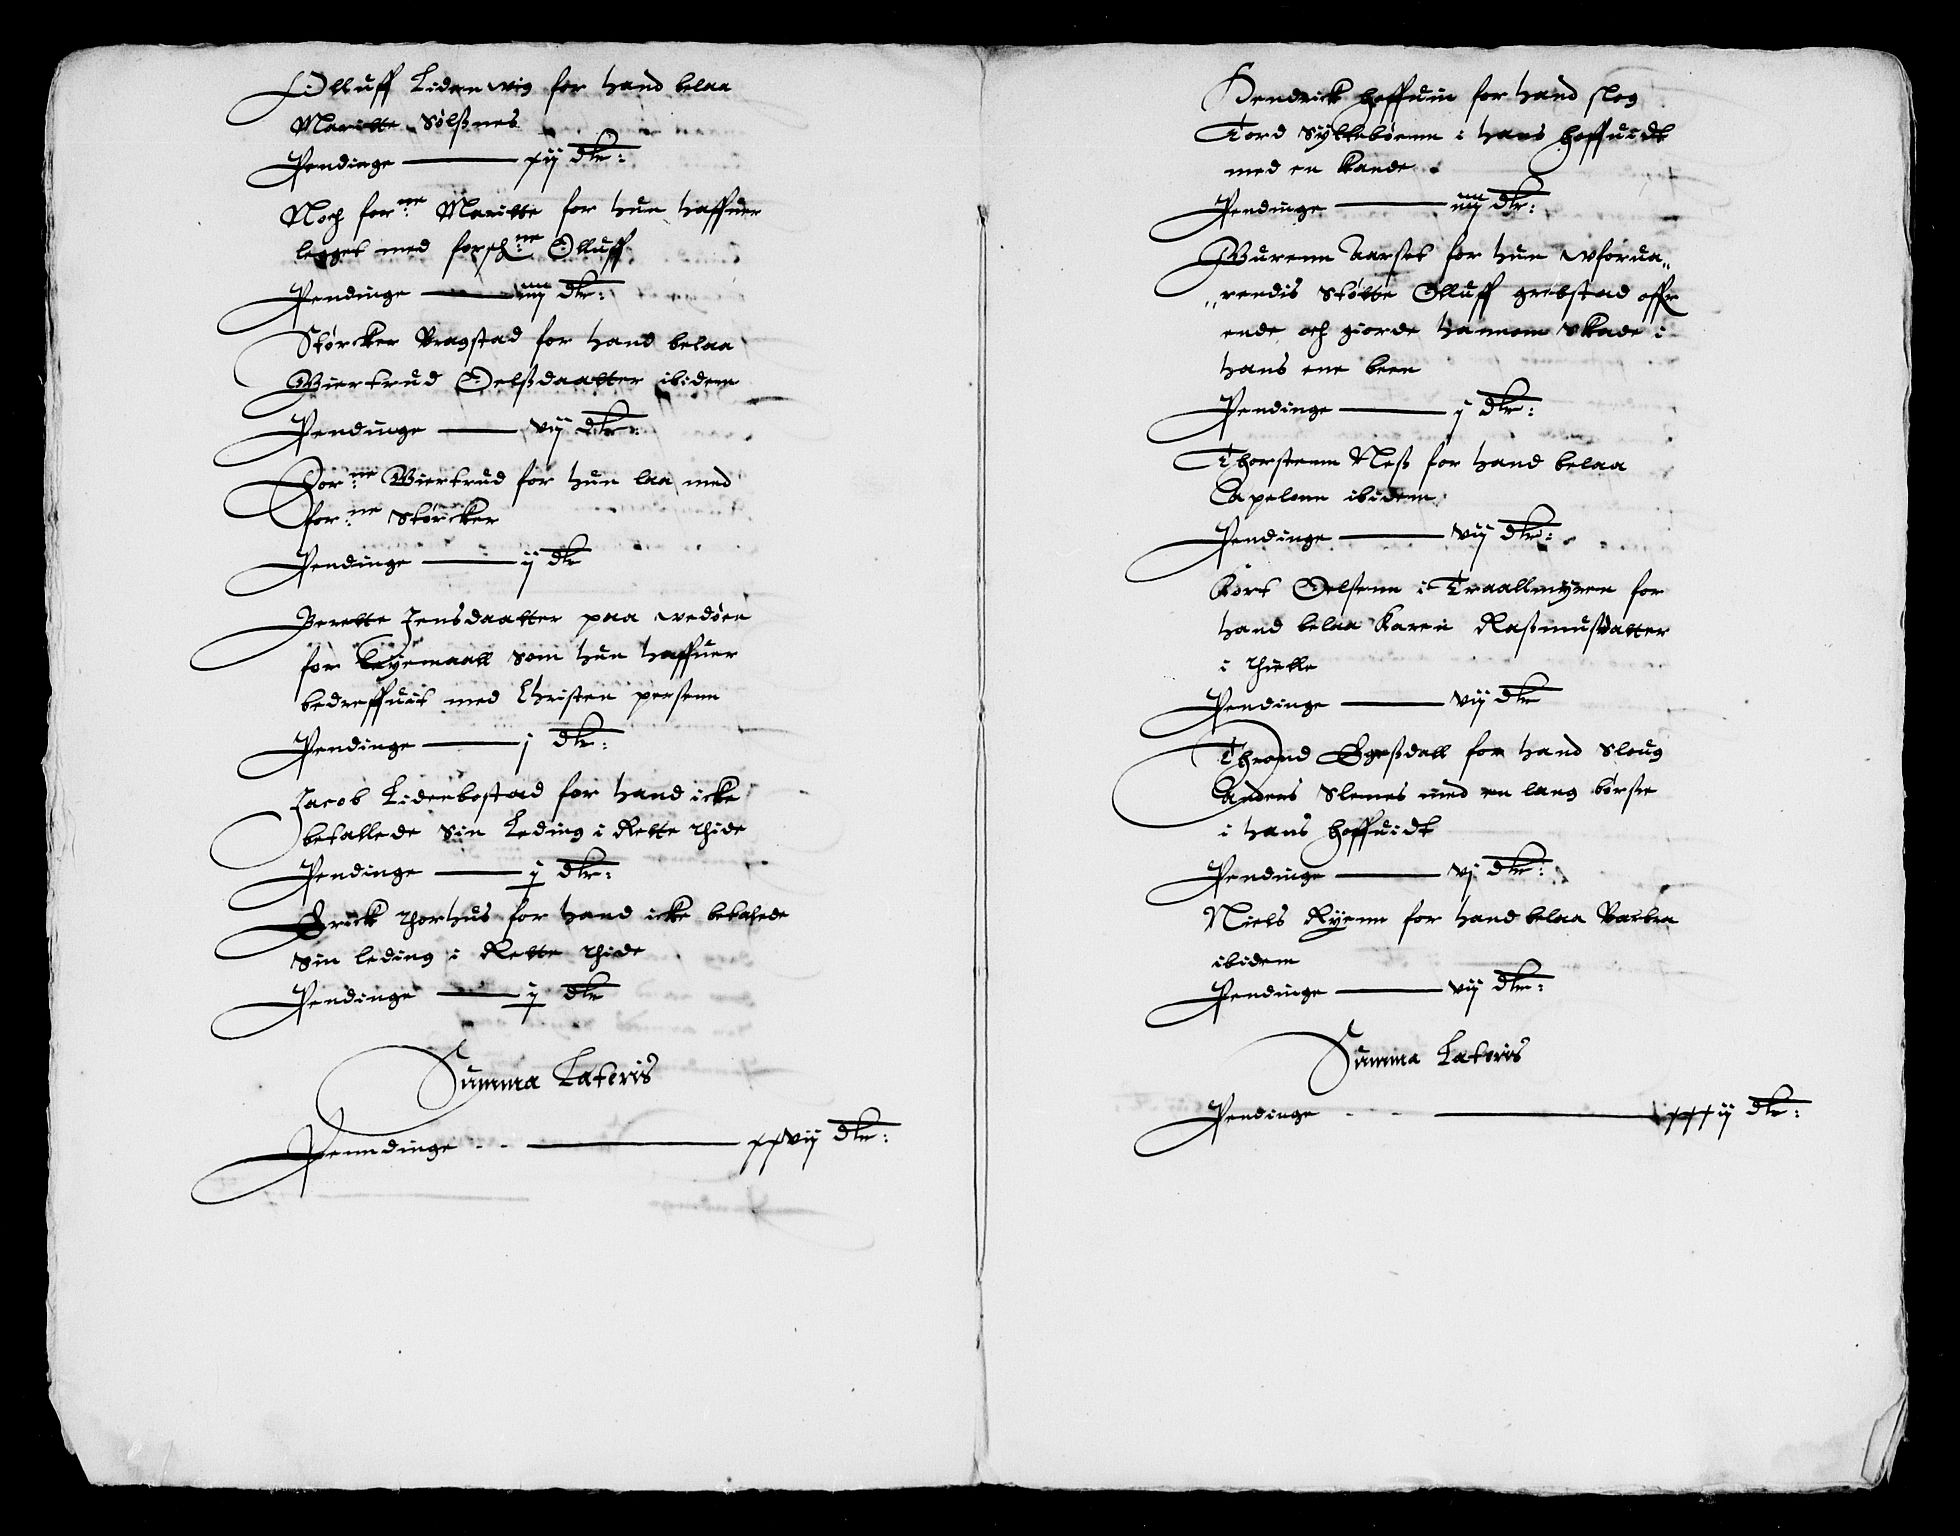 Olluff Lidenvig for hand belaa
Maritte Sølßnes
Pendinge xij dlr:
Noch for:ne Maritte for hun haffuer
legget med forsch:ne Olluff
Pendinge iiij dlr:
Størcker Vragstad for hand belaa
Giertrud Oelßdaatter ibidem
Pendinge vij dlr:
For:ne Giertrud for hun laa med
for:ne Størcker
Pendinge ij dlr
Berette Jensdaatter paa vedøen
for leyemaall som hun haffuer
bedreffuit med Christen persenn
Pendinge j dlr:
Jacob Lidenbostad for hand icke
betallede Sin Leding i Rette thide
Pendinge ij dlr:
Erick thorhus for hand icke betahede
Sin leding i Rette thide
Pendinge ij dlr
Summa Lateris
Penndinge - - xxvij dlr:
Hendrick hoffuin for hand slog
Tord Syltebøenn i hans hoffuidt
med en kande
Pendinge iiij dlr:
Gurenn Aarset for hun vforua„
„rendis Støtte Olluff grebstad offr
ende och giorde hannom Skade i
hans ene been
Pendinge j dlr:
Thorstenn Neß for hand belaa
Apelonn ibidem
Pendinge vij dlr:
Kort Oelsenn i Traallmyren for
hand belaa Karen Raßmusdatter
i thielle
Pendinge vij dlr
Thrond Egeßdall for hand Sloug
Anders Slemes med en lang børste
i hans hoffuidt
Pendinge vj dlr:
Niels Ryenn for hand belaa Barbra
ibidem
Pendinge vij dlr:
Summa Lateris
Pendinge - - xxxij dlr: